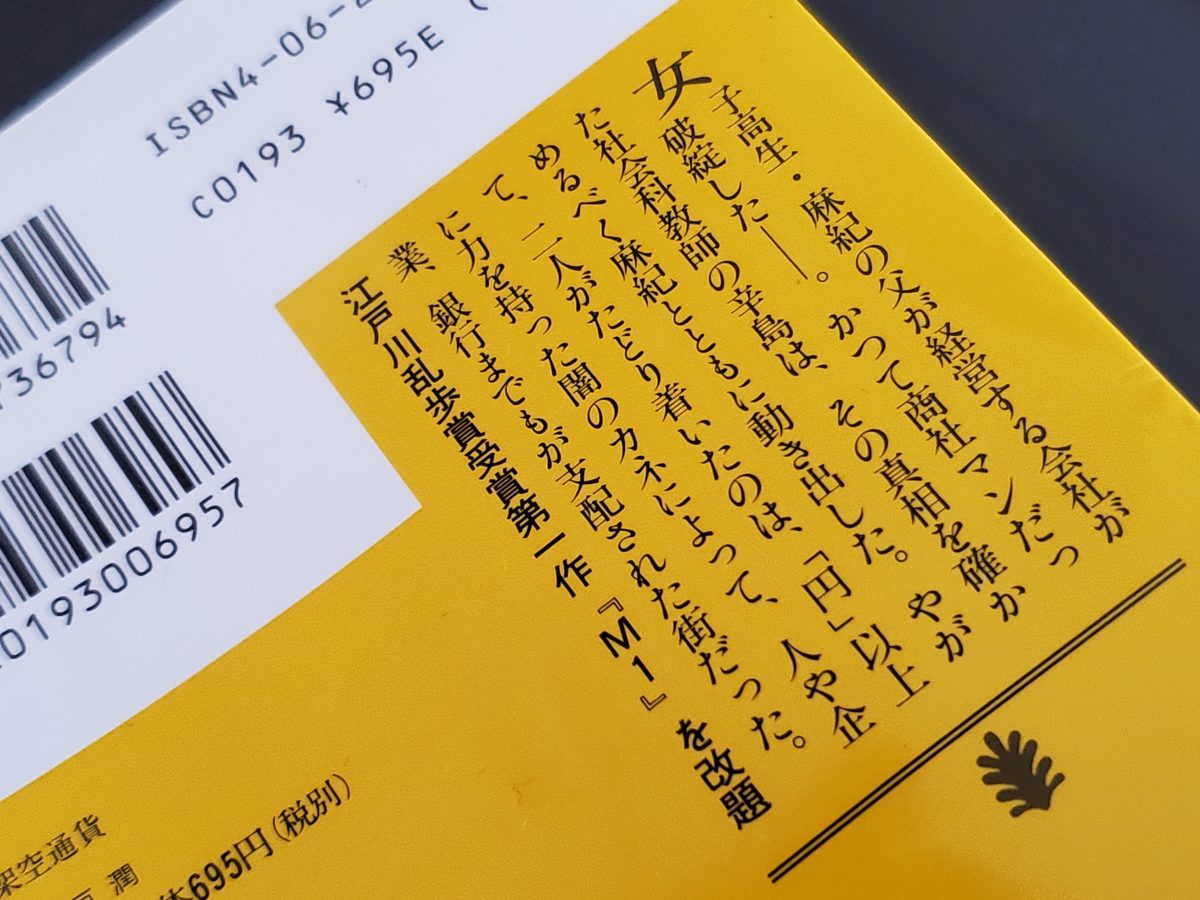 ISBN4-06-2
C0193 ¥695E (
736794
0193006957
女子高生・麻紀の父が経営する会社が
破綻した――。かつて商社マンだっ
た社会科教師の辛島は、その真相を確か
めるべく麻紀とともに動き出した。やが
て、二人がたどり着いたのは、「円」以上
に力を持った闇のカネによって、人や企
業、銀行までもが支配された街だった。
江戸川乱歩賞受賞第一作『M1』を改題
架空通貨
潤
体695円(税別)